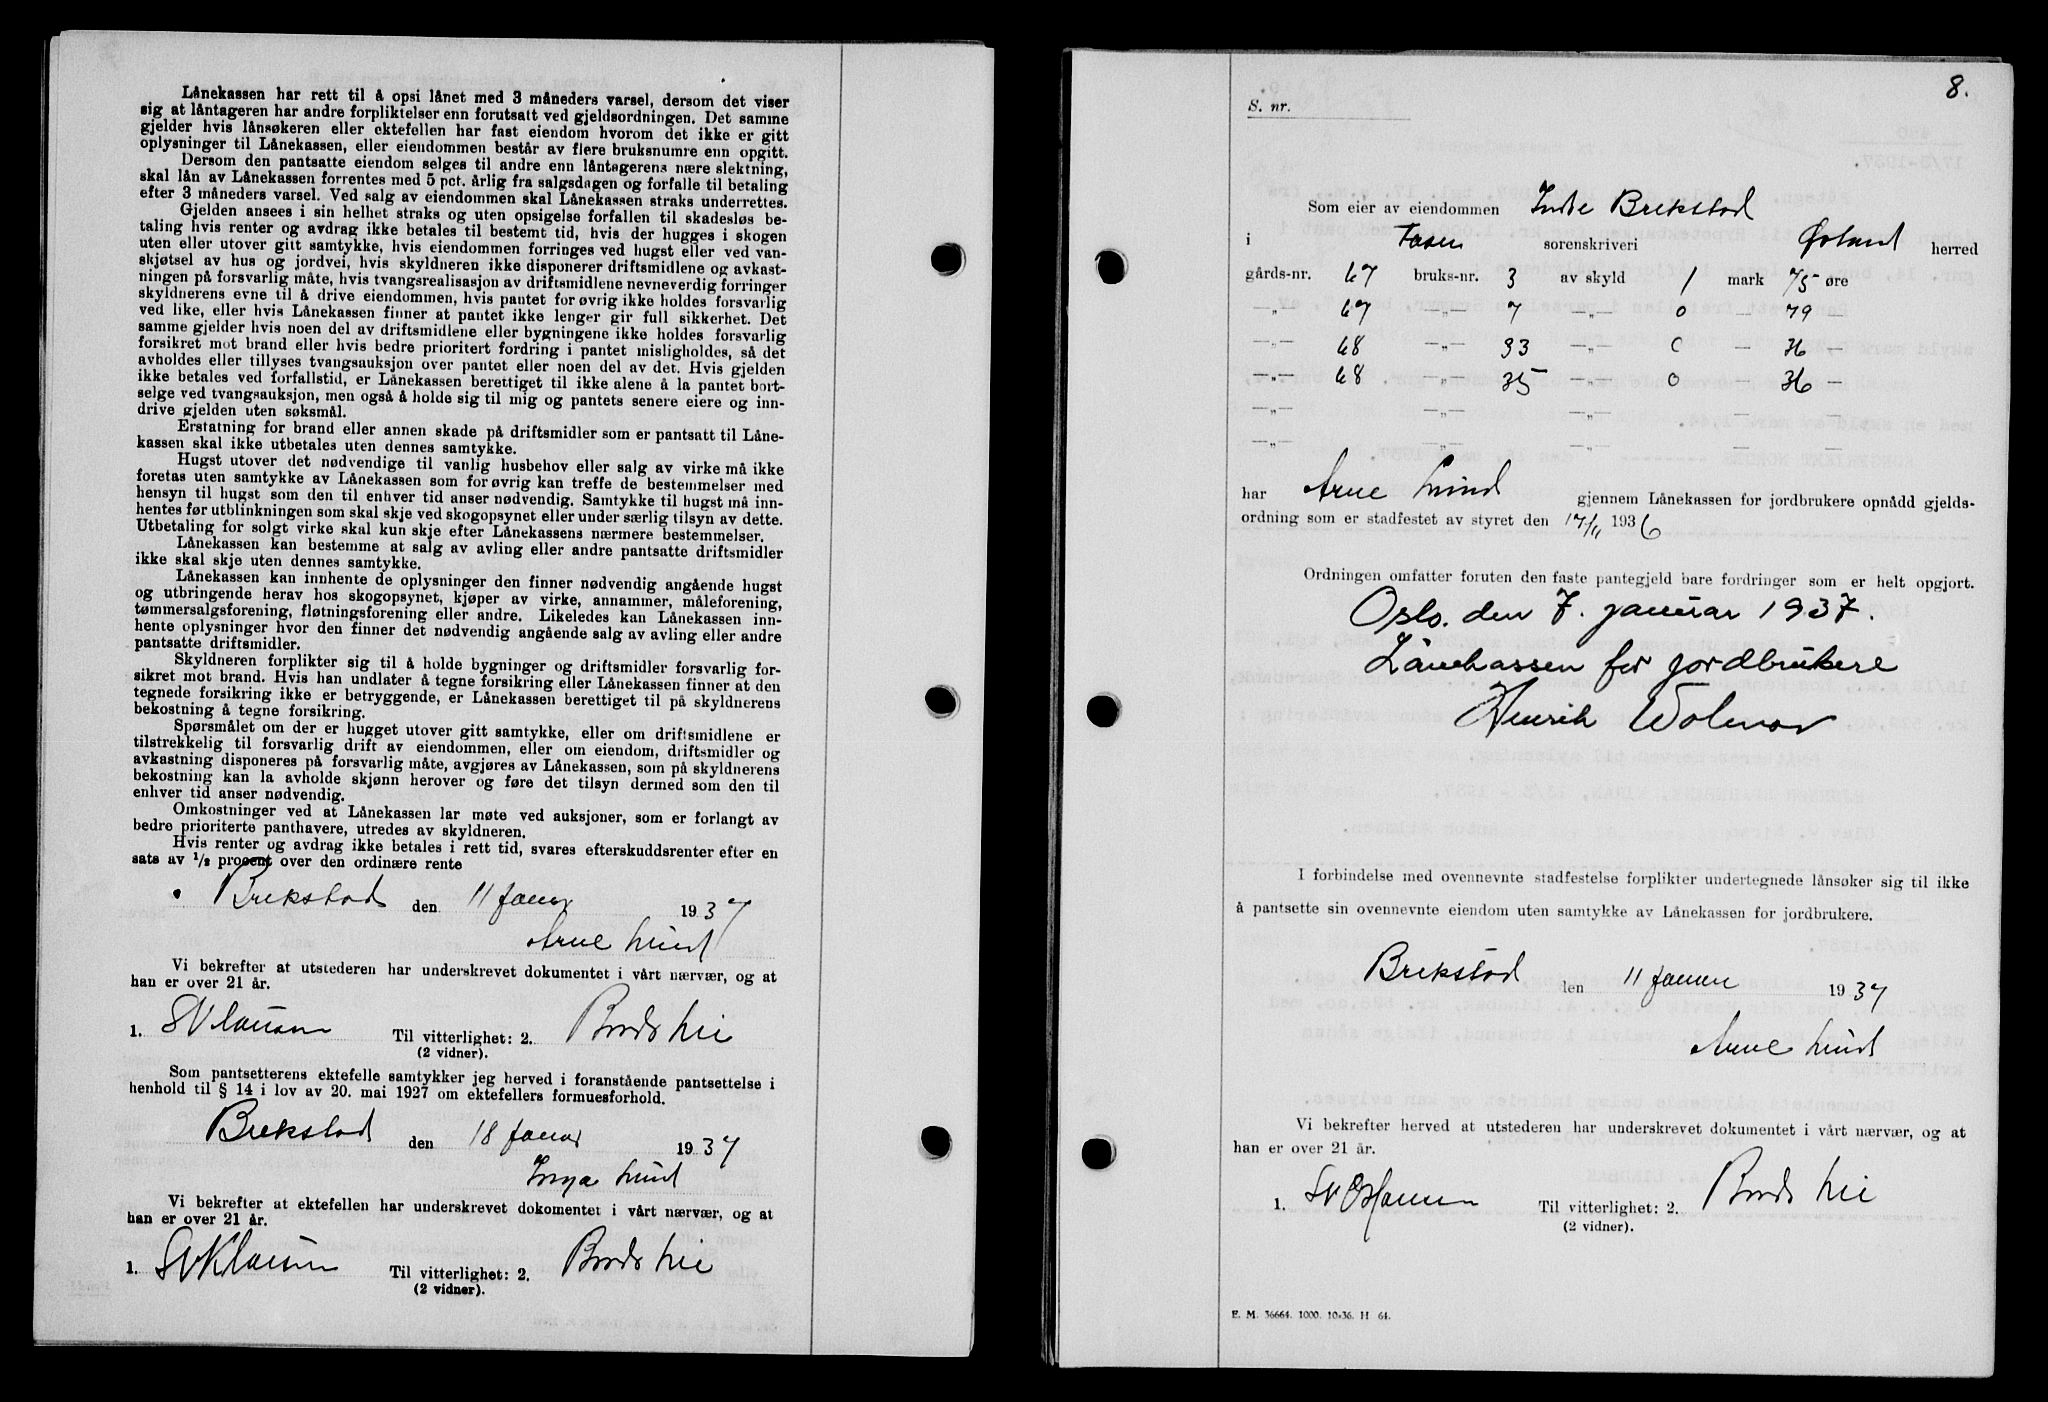 Lånekassen har rett til å opsi lånet med 3 måneders varsel, dersom det viser
sig at låntageren har andre forpliktelser enn forutsatt ved gjeldsordningen. Det samme
gjelder hvis lånsøkeren eller ektefellen har fast eiendom hvorom det ikke er gitt
oplysninger til Lånekassen, eller eiendommen består av flere bruksnumre enn opgitt.
Dersom den pantsatte eiendom selges til andre enn låntagerens nære slektning,
skal lån av Lånekassen forrentes med 5 pct. årlig fra salgsdagen og forfalle til betaling
efter 3 måneders varsel. Ved salg av eiendommen skal Lånekassen straks underrettes.
Gjelden ansees i sin helhet straks og uten opsigelse forfallen til skadesløs be-
taling hvis renter og avdrag ikke betales til bestemt tid, hvis der hugges i skogen
uten eller utover gitt samtykke, hvis eiendommen forringes ved hugst eller ved van-
skjøtsel av hus og jordvei, hvis skyldneren ikke disponerer driftsmidlene og avkast-
ningen på forsvarlig måte, hvis tvangsrealisasjon av driftsmidlene nevneverdig forringer
skyldnerens evne til å drive eiendommen, hvis pantet for øvrig ikke holdes forsvarlig
ved like, eller hvis Lånekassen finner at pantet ikke lenger gir full sikkerhet. Det
samme gjelder hvis noen del av driftsmidlene eller bygningene ikke holdes forsvarlig
forsikret mot brand eller hvis bedre prioritert fordring i pantet misligholdes, så det
avholdes eller tillyses tvangsauksjon over pantet eller noen del av det. Hvis gjelden
ikke betales ved forfallstid, er Lånekassen berettiget til ikke alene å la pantet bort-
selge ved tvangsauksjon, men også å holde sig til mig og pantets senere eiere og inn-
drive gjelden uten søksmål.
Erstatning for brand eller annen skade på driftsmidler som er pantsatt til Låne-
kassen skal ikke utbetales uten dennes samtykke.
Hugst utover det nødvendige til vanlig husbehov eller salg av virke må ikke
foretas uten samtykke av Lånekassen som for øvrig kan treffe de bestemmelser med
hensyn til hugst som den til enhver tid anser nødvendig. Samtykke til hugst må inn-
hentes før utblinkningen som skal skje ved skogopsynet eller under særlig tilsyn av dette.
Utbetaling for solgt virke skal kun skje efter Lånekassens nærmere bestemmelser.
Lånekassen kan bestemme at salg av avling eller andre pantsatte driftsmidler
ikke skal skje uten dennes samtykke.
Lånekassen kan innhente de oplysninger den finner nødvendig angående hugst
og utbringende herav hos skogopsynet, kjøper av virke, annammer, måleforening,
tømmersalgsforening, fløtningsforening eller andre. Likeledes kan Lånekassen inn-
hente oplysninger hvor den finner det nødvendig angående salg av avling eller andre
pantsatte driftsmidler.
Skyldneren forplikter sig til å holde bygninger og driftsmidler forsvarlig for-
sikret mot brand. Hvis han undlater å tegne forsikring eller Lånekassen finner at den
tegnede forsikring ikke er betryggende, er Lånekassen berettiget til på skyldnerens
bekostning å tegne forsikring.
Spørsmålet om der er hugget utover gitt samtykke, eller om driftsmidlene er
tilstrekkelig til forsvarlig drift av eiendommen, eller om eiendom, driftsmidler og
avkastning disponeres på forsvarlig måte, avgjøres av Lånekassen, som på skyldnerens
bekostning kan la avholde skjønn herover og føre det tilsyn dermed som den til
enhver tid anser nødvendig.
Omkostninger ved at Lånekassen lar møte ved auksjoner, som er forlangt av
bedre prioriterte panthavere, utredes av skyldneren.
Hvis renter og avdrag ikke betales i rett tid, svares efterskuddsrenter efter en
sats av 1/2 procent over den ordinære rente
Brekstad den 11 Januar 1937
Arne Lund
Vi bekrefter at utstederen har underskrevet dokumentet i vårt nærvær, og at
han er over 21 år.
1. Til vitterlighet: 2.
(2 vidner).
Som pantsetterens ektefelle samtykker jeg herved i foranstående pantsettelse i
henhold til § 14 i lov av 20. mai 1927 om ektefellers formuesforhold.
Brekstad den 18 Januar 1937
Inga Lund
Vi bekrefter at ektefellen har underskrevet dokomentet i vårt nærvær, og at
han er over 21 år.
1. Til vitterlighet: 2.
(2 vidner).
8.
S. nr.
Som eier av eiendommen Indre Brekstad
i Fosen sorenskriveri Ørland herred
gårds-nr. 67 bruks-nr. 3 av skyld 1 mark 75 øre
—„— 67 —„— 7 —„— 0 — 79 —
—„— 68 —„— 33 —„— 0 — 36 —
—„— 68 —„— 35 —„— 0 — 36 —
—„— —„— —„— — —
—„— —„— —„— — —
har Arne Lund gjennem Lånekassen for jordbrukere opnådd gjelds-
ordning som er stadfestet av styret den 17/11 1936
Ordningen omfatter foruten den faste pantegjeld bare fordringer som er helt opgjort.
Oslo, den 7. januar 1937.
Lånekassen for jordbrukere
Henrik
I forbindelse med ovennevnte stadfestelse forplikter undertegnede lånsøker sig til ikke
å pantsette sin ovennevnte eiendom uten samtykke av Lånekassen for jordbrukere.
Brekstad den 11 Januar 1937
Arne Lund
Vi bekrefter herved at utstederen har underskrevet dokumentet i vårt nærvær, og at
han er over 21 år.
1. Til vitterlighet: 2.
(2 vidner).
E. M. 36664. 1000. 10-36. H 64.